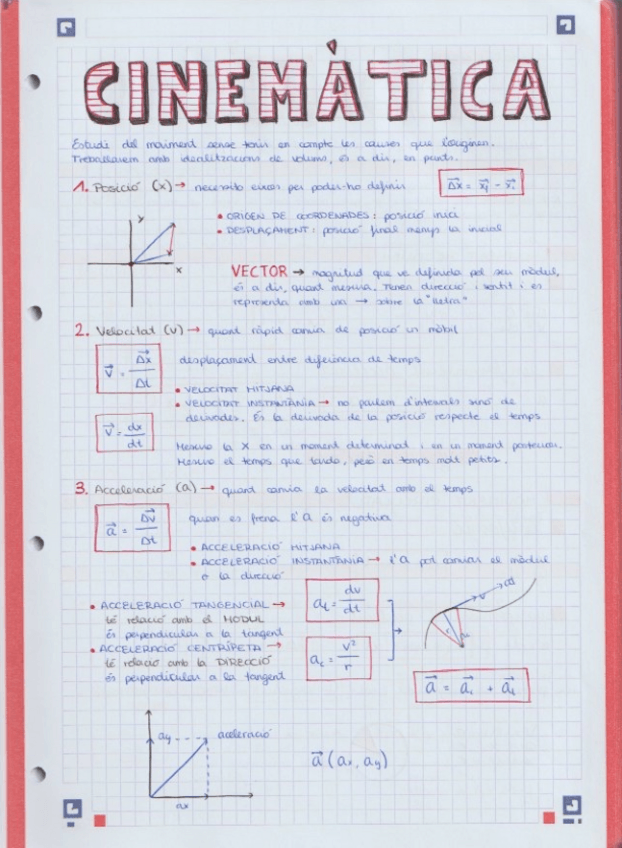 CINEMÀTICA
Estudi del moviment sense tenir en compte les causes que l'originen.
Treballarem amb idealitzacions de volums, és a dir, en punts.
1. Posició (x) → necessito eixos per poder-ho definir
Δx = xf - xi
y
x
• ORIGEN DE COORDENADES: posició inici
• DESPLAÇAMENT: posició final menys la inicial
VECTOR → magnitud que ve definida pel seu mòdul,
és a dir, quant mesura. Tenen direcció i sentit i es
representa amb una → sobre la "lletra"
2. Velocitat (v) → quant ràpid canvia de posició un mòbil
v = Δx / Δt
desplaçament entre diferència de temps
• VELOCITAT MITJANA
• VELOCITAT INSTANTÀNIA → no parlem d'intervals sinó de
derivades. És la derivada de la posició respecte el temps
v = dx / dt
Mesuro la X en un moment determinat i en un moment posterior.
Mesuro el temps que tarda, però en temps molt petits.
3. Acceleració (a) → quant canvia la velocitat amb el temps
a = Δv / Δt
quan es frena l'a és negativa
• ACCELERACIÓ MITJANA
• ACCELERACIÓ INSTANTÀNIA → l'a pot canviar el mòdul
o la direcció
• ACCELERACIÓ TANGENCIAL →
té relació amb el MÒDUL
és perpendicular a la tangent
at = dv / dt
• ACCELERACIÓ CENTRÍPETA →
té relació amb la DIRECCIÓ
és perpendicular a la tangent
ac = v² / r
v
a = ac + at
ay
acceleració
ax
a (ax, ay)